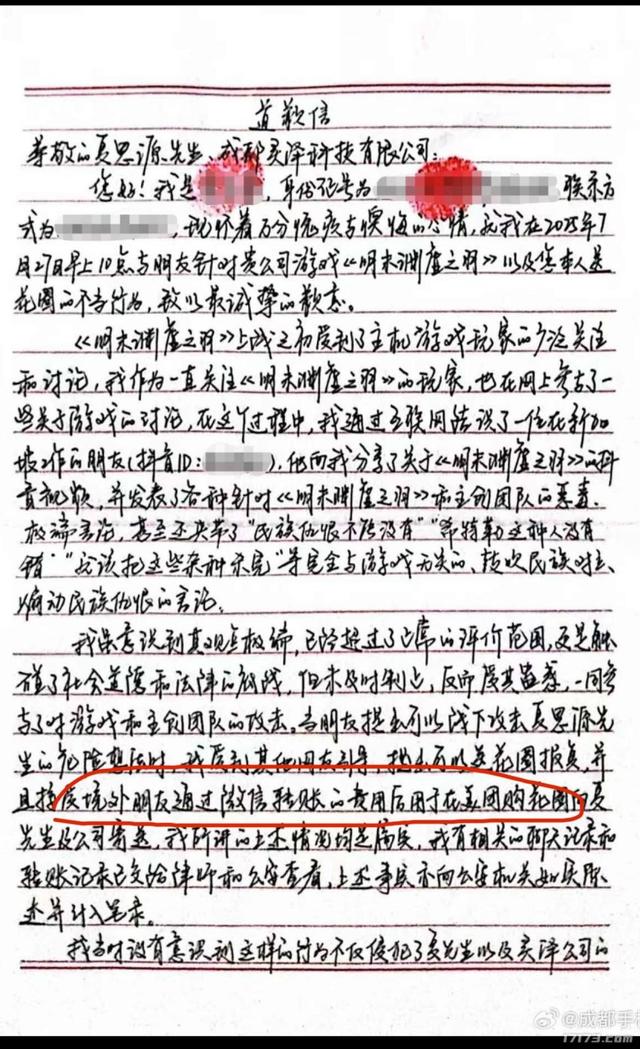 道歉信
尊敬的夏思源先生、成都灵泽科技有限公司:
您好!我是 ,身份证号为 联系方
式为 ,现怀着万分愧疚与懊悔的心情,就我在2025年7
月27日早上10点与朋友针对贵公司游戏《明末渊虚之羽》以及您本人送
花圈的不当行为,致以最诚挚的歉意。
《明末渊虚之羽》上线之初受到了主机游戏玩家的广泛关注
和讨论,我作为一直关注《明末渊虚之羽》的玩家,也在网上参与了一
些关于游戏的讨论,在这个过程中,我通过互联网结识了一位在新加
坡工作的朋友(抖音ID: ),他向我分享了关于《明末渊虚之羽》的抖
音视频,并发表了各种针对《明末渊虚之羽》和主创团队的恶毒、
极端言论,甚至还夹带了“民族仇恨不能没有”“希特勒这种人没有
错”“应该把这些杂种杀完”等完全与游戏无关的、鼓吹民族对立、
煽动民族仇恨的言论。
我虽意识到其观点极端,已经超过了正常的评价范围,更是触
碰了社会道德和法律的底线,但未及时制止,反而受其蛊惑,一同参
与了对游戏和主创团队的攻击。当朋友提出可以线下攻击夏思源先
生的危险想法时,我受到其他网友引导,提出可以送花圈报复,并
且接受境外朋友通过微信转账的费用后用于在美团购花圈向夏
先生及公司寄送,我所讲的上述情况均是属实,我有相关的聊天记录和
转账记录已交给律师和公安查看,上述事实亦向公安机关如实陈
述并计入笔录。
我当时没有意识到这样的行为不仅侵犯了夏先生以及灵泽公司的
@成都手
17173.com